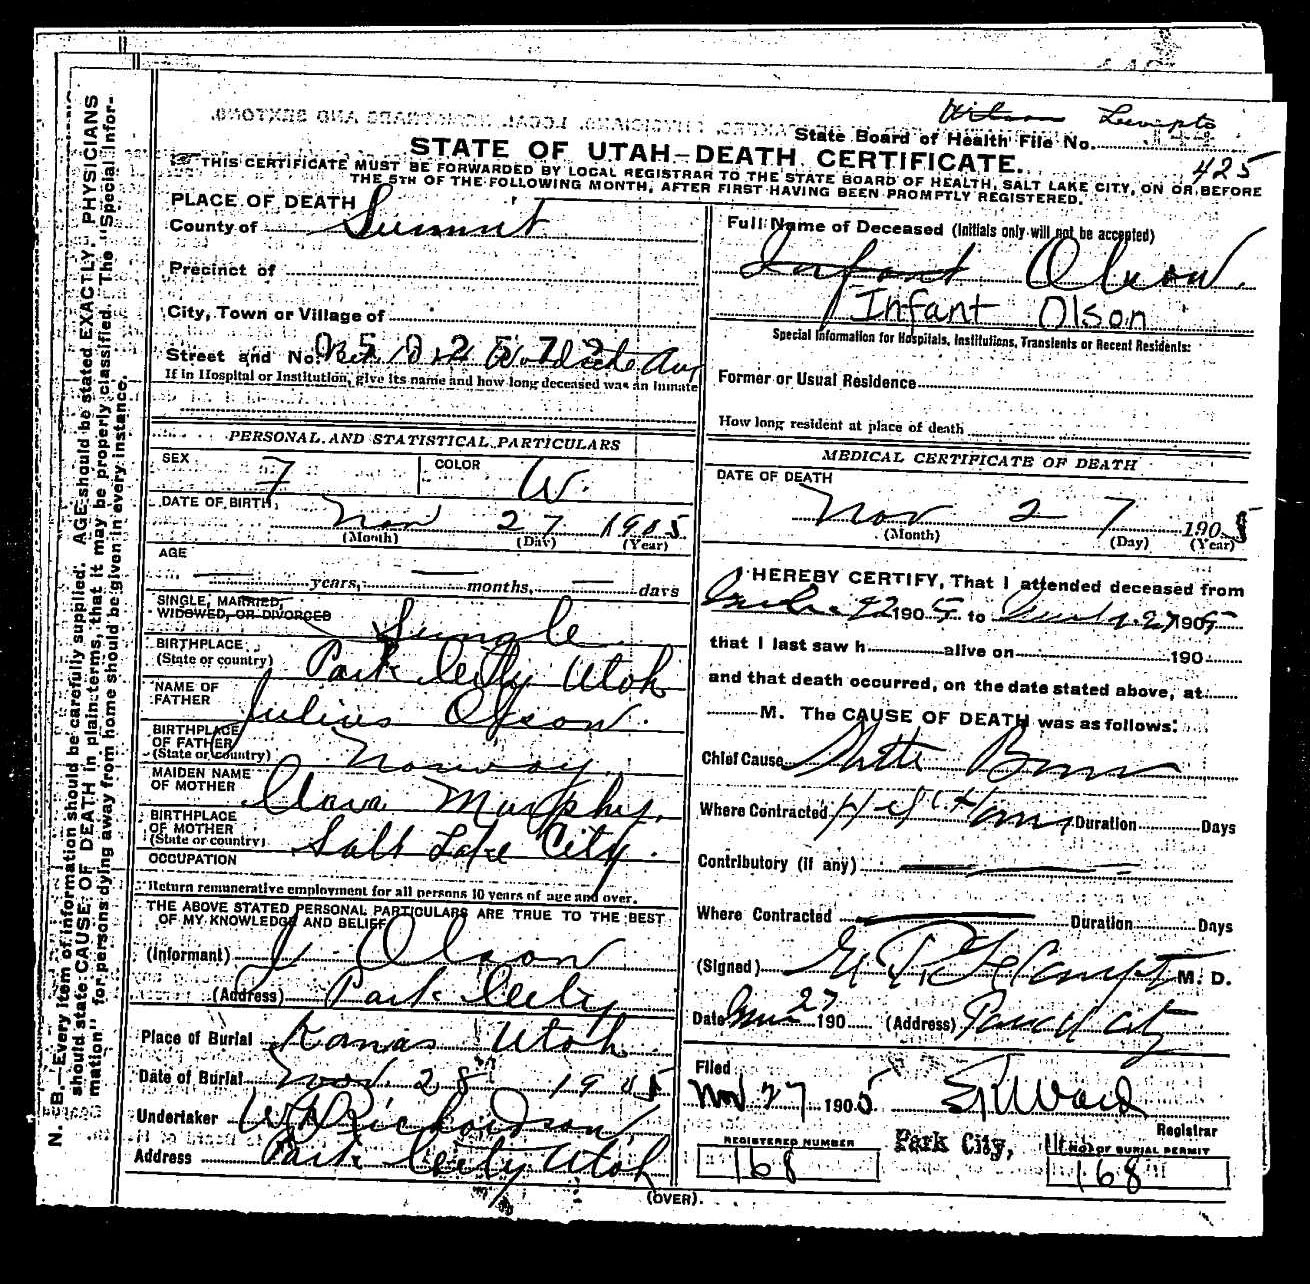 State Board of Health File No.
425
STATE OF UTAH—DEATH CERTIFICATE.
THIS CERTIFICATE MUST BE FORWARDED BY LOCAL REGISTRAR TO THE STATE BOARD OF HEALTH, SALT LAKE CITY, ON OR BEFORE
THE 5TH OF THE FOLLOWING MONTH, AFTER FIRST HAVING BEEN PROMPTLY REGISTERED.
PLACE OF DEATH
County of Summit
Precinct of
City, Town or Village of
Street and No.
If in Hospital or Institution, give its name and how long deceased was an inmate
PERSONAL AND STATISTICAL PARTICULARS
SEX F COLOR W.
DATE OF BIRTH
Nov 27 1905
(Month) (Day) (Year)
AGE
years, months, days
SINGLE, MARRIED,
WIDOWED, OR DIVORCED Single
BIRTHPLACE
(State or country) Park City Utah
NAME OF
FATHER Julius Olson.
BIRTHPLACE
OF FATHER
(State or country) Norway.
MAIDEN NAME
OF MOTHER Clara Murphy.
BIRTHPLACE
OF MOTHER
(State or country) Salt Lake City.
OCCUPATION
Return remunerative employment for all persons 10 years of age and over.
THE ABOVE STATED PERSONAL PARTICULARS ARE TRUE TO THE BEST
OF MY KNOWLEDGE AND BELIEF
(Informant) J. Olson
(Address) Park City
Place of Burial Kamas Utah.
Date of Burial Nov. 28 1905
Undertaker W Richardson
Address Park City Utah
Full Name of Deceased (Initials only will not be accepted)
Infant Olson.
Infant Olson
Special Information for Hospitals, Institutions, Transients or Recent Residents:
Former or Usual Residence
How long resident at place of death
MEDICAL CERTIFICATE OF DEATH
DATE OF DEATH
Nov 27 1905
(Month) (Day) (Year)
I HEREBY CERTIFY, That I attended deceased from
1905 to 27 1905
that I last saw h alive on 190
and that death occurred, on the date stated above, at
M. The CAUSE OF DEATH was as follows:
Chief Cause
Where Contracted Duration Days
Contributory (if any)
Where Contracted Duration Days
(Signed) M. D.
Date 27 190 (Address) Park City
Filed
Nov 27 1905 Ward
Registrar
REGISTERED NUMBER
168
Park City,
NO. OF BURIAL PERMIT
168
(OVER).
N. B.—Every item of information should be carefully supplied. AGE should be stated EXACTLY. PHYSICIANS
should state CAUSE OF DEATH in plain terms, that it may be properly classified. The "Special Infor-
mation" for persons dying away from home should be given in every instance.